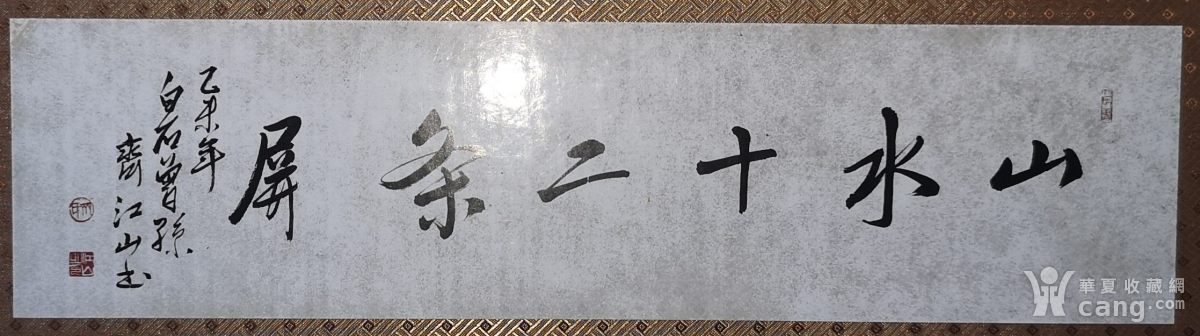 山水十二条屏
乙未年
白石曾孫
齊江山书
華夏收藏網
cang.com